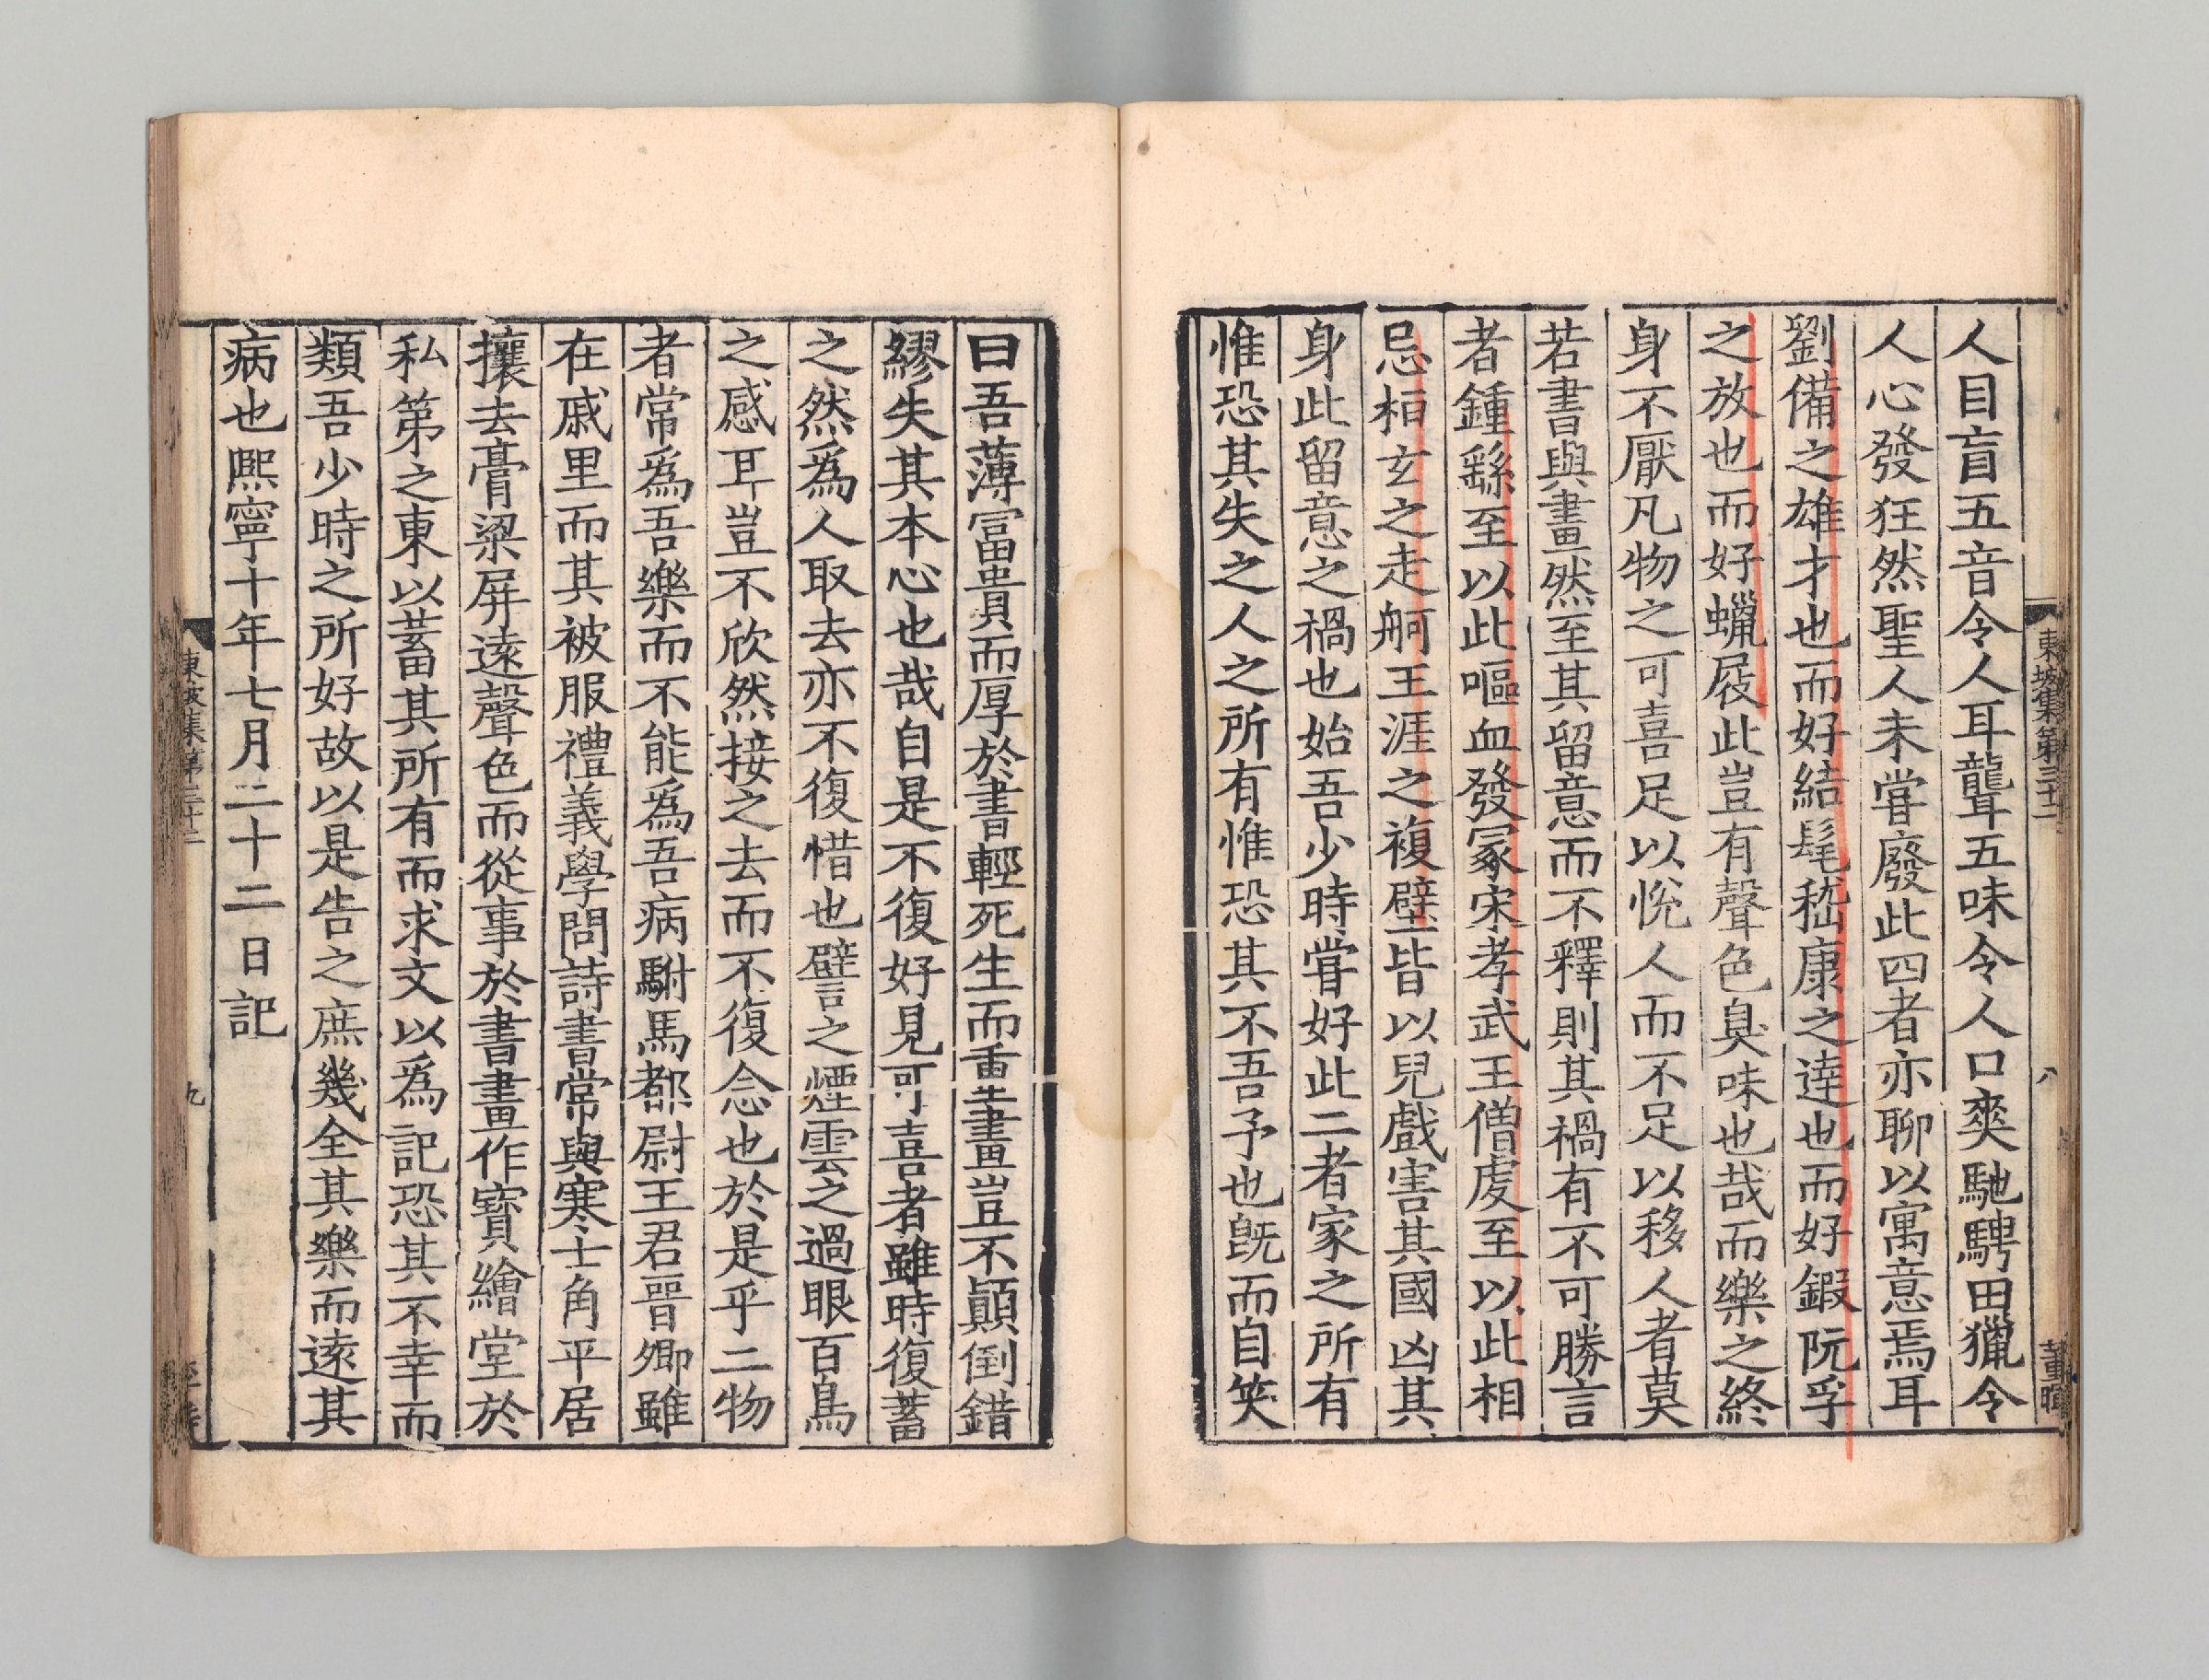 東坡集第三十二
八
董暉
人目盲五音令人耳聾五味令人口爽馳騁田獵令
人心發狂然聖人未甞廢此四者亦聊以寓意焉耳
劉備之雄才也而好結髦嵇康之達也而好鍜阮孚
之放也而好蠟屐此豈有聲色臭味也哉而樂之終
身不厭凡物之可喜足以恱人而不足以移人者莫
若書與畫然至其留意而不釋則其禍有不可勝言
者鍾繇至以此嘔血發冢宋孝武王僧虔至以此相
忌桓玄之走舸王涯之複壁皆以兒戲害其國凶其
身此留意之禍也始吾少時甞好此二者家之所有
惟恐其失之人之所有惟恐其不吾予也旣而自笑
曰吾薄富貴而厚於書輕死生而重畫豈不顛倒錯
繆失其本心也哉自是不復好見可喜者雖時復蓄
之然爲人取去亦不復惜也譬之煙雲之過眼百鳥
之感耳豈不欣然接之去而不復念也於是乎二物
者常爲吾樂而不能爲吾病駙馬都尉王君晉卿雖
在戚里而其被服禮義學問詩書常與寒士角平居
攘去膏粱屏遠聲色而從事於書畫作寳繪堂於
私第之東以蓄其所有而求文以爲記恐其不幸而
類吾少時之所好故以是告之庶幾全其樂而遠其
病也熈寧十年七月二十二日記
東坡集第三十二
九